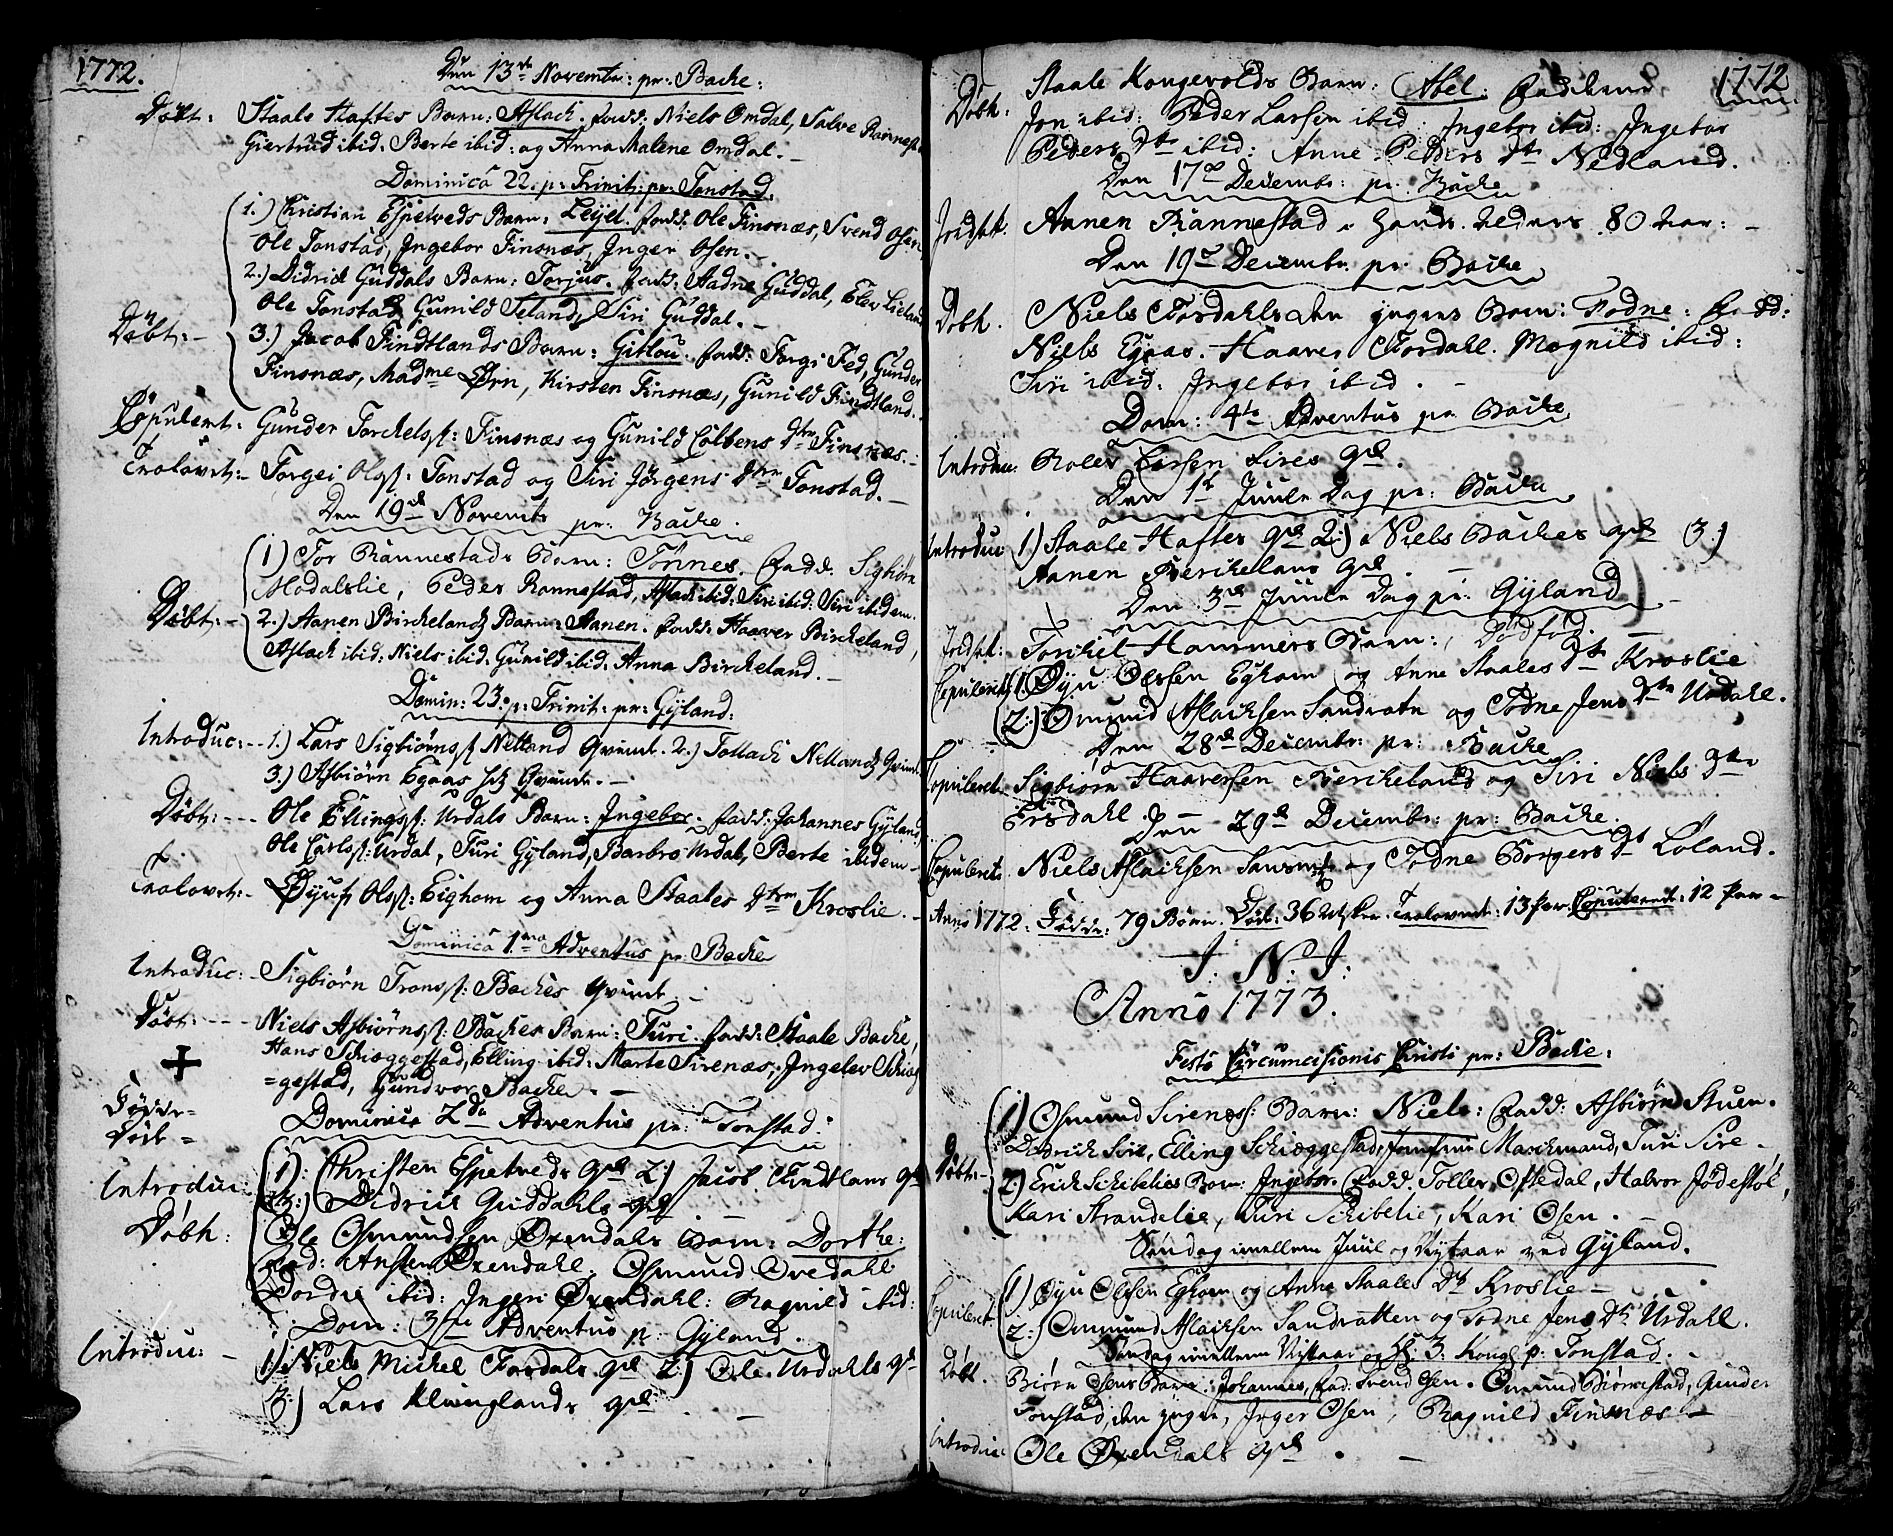 1772.
Den 13de Novembr: pr: Backe:
Døbt: Staale Haftes Barn: Aslack. fadd: Niels Omdal, Salve Rannest:
Giertrud ibid. Berte ibid: og Anna Malene Omdal. –
Dominica 22. p: Trinit: pr: Tonstad.
1.) Christian Espetveds Barn: Leyel. fadd: Ole Finsnæs, Svend Osen
Ole Tonstad, Ingebor Finsnæs, Inger Osen. –
2.) Didrick Guddals Barn: Torjus. fadd: Aadne Guddal, Elev Lieland
Ole Tonstad, Gunild Seland, Siri Guddal. –
Døbt: – 3.) Jacob Findtlands Barn: Gitlou. fadd: Torgi Fed, Gunder
Finsnæs, Madme Ørn, Kirsten Finsnæs, Gunild Findtland.
Copuleret: Gunder Torckels: Finsnæs og Gunild Colbens dtr Finsnæs. –
Trolovet: – Torgei Ols: Tonstad og Siri Jørgens dtr Tonstad. –
Den 19de Novembr pr: Backe.
1) Tor Rannestads Barn: Tønnes. Fadd: Sigbiørn
Modalslie, Peder Rannestad, Aslack ibid: Siri ibid: Siri ibidem.
Døbt: – 2.) Aanen Birckelands Barn: Aanen. fadd: Haaver Birckeland,
Aslack ibid: Niels ibid. Gunild ibid: Anna Birckeland. –
Domin: 23. p: Trinit: pr: Gyland:
Introduc: – 1.) Lars Sigbiørns Netland Qvinde. 2.) Tollack Netlands Qvinde.
3.) Asbiørn Egaas Qvinde. –
Døbt: – – – Ole Ellings: Urdals Barn: Ingebor. fadd: Johannes Gyland
Ole Carls: Urdal, Turi Gyland, Barbro Urdal, Berte ibidem –
Trolovet: – Øyuf Ols: Eighom og Anna Staales dtr Kroslie. –
Dominica 1ma Adventus pr: Backe
Introduc: – Sigbiørn Trons: Backes Qvinde –
Døbt: – – – Niels Asbiørns: Backes Barn: Turi. fadd: Staale Backe,
Hans Schieggestad, Elling ibid: Marte Sirenæs, Ingelev Schieg
=gestad, Gundvor Backe. –
Fødde =
Døde =
Dominica 2da Adventus pr: Tonstad.
Introduc: 1): Christen Espetveds Qd 2:) Jacob Findtlans Qd
3:) Didrick Guddahls Qd
Døbt: Ole Osmundsen Øxendals Barn: Dorthe:
Fad: Ansten Øxendahl. Osmund Ovedahl
Dordie ibid: Ingeri Øxendahl: Ragnild ibid:
Dom: 3tia Adventus p: Gyland.
Introduc: – 1) Niels Mickel Fordals Qd 2:) Ole Urdahls Qd
3:) Lars Klunglands Qd –
1772
Døbt: Staale Kongevolds Barn: Abel: Fadderne
Jon ibid: Peder Larsen ibid: Ingebor ibid: Ingebor
Peders Dtr ibid: Anne Peders Dtr Nedland.
Den 17de Decembr: pr: Backe
Jordsk: Aanen Rannestad hands Alders 80 Aar: –
Den 19de Decembr. pr: Backe
Døbt. Niels Fordahls den yngers Barn: Todne: Fadd:
Niels Egaas. Haaver Fordahl. Magnild ibid:
Siri ibid. Ingebor ibid. –
Dom: 4te Adventus pr: Backe
Introdu: Rolev Larsen Sires Qd.
Den 1te Juule Dag pr: Backe
Introduc: 1) Staale Haftes Qd 2:) Niels Backes Qd 3:)
Aanen Berckelans Qd. –
Den 3de Juule Dag pr: Gyland
Jordsk: Torckel Hammers Barn: Dødfød. –
Copuleret: 1. Øyu Olsen Eghom og Anne Staales Dtr Kroslie
2:) Omund Aslacksen Sandvatn og Todne Jens Dtr Urdahl.
Den 28de Decembr: pr: Backe
Copuleret: Sigbiørn Haaversen Berckeland og Siri Niels Dtr
Ersdahl. Den 29de Decembr: pr: Backe.
Copuleret: Niels Aslacksen og Todne Borgers Dt Løland.
Anno 1772. Fødde: 79 Børn. Døde: 36 Trolovede: 13 Par. Copulerede: 12 Par –
J: N: J:
Anno 1773.
Festo Circumcisionis Christi pr: Backe.
1) Osmund Sirenæs: Barn: Niels: Fadd: Asbiørn Stuen.
Didrich Sire, Elling Schieggestad, Marckmand, Turi Sire –
Døbt: – 2) Erich Schibelies Barn: Ingebor. Fadd: Tolle Oftedal, Halvor Jødestøl,
Kari Strandelie, Turi Schibelie, Kari Osen. –
Søndag imellem Juul og Nytaar ved Gyland.
Copuleret: 1) Øyu Olsen Eghom og Anne Staales Dt Kroslie –
2:) Ommund Aslacksen Sandvatten og Todne Jens Dtr Urdahl.
Søndag imellem Nytaar og H: 3. Kong: p: Tonstad. –
Døbt. Biørn Osens Barn: Johannes, fad: Svend Osen. Omund Biørnestad, Gunder
Tonstad, den yngre, Inger Osen, Ragnild Finsnæs –
Introduc: Ole Øxendals Qd. –